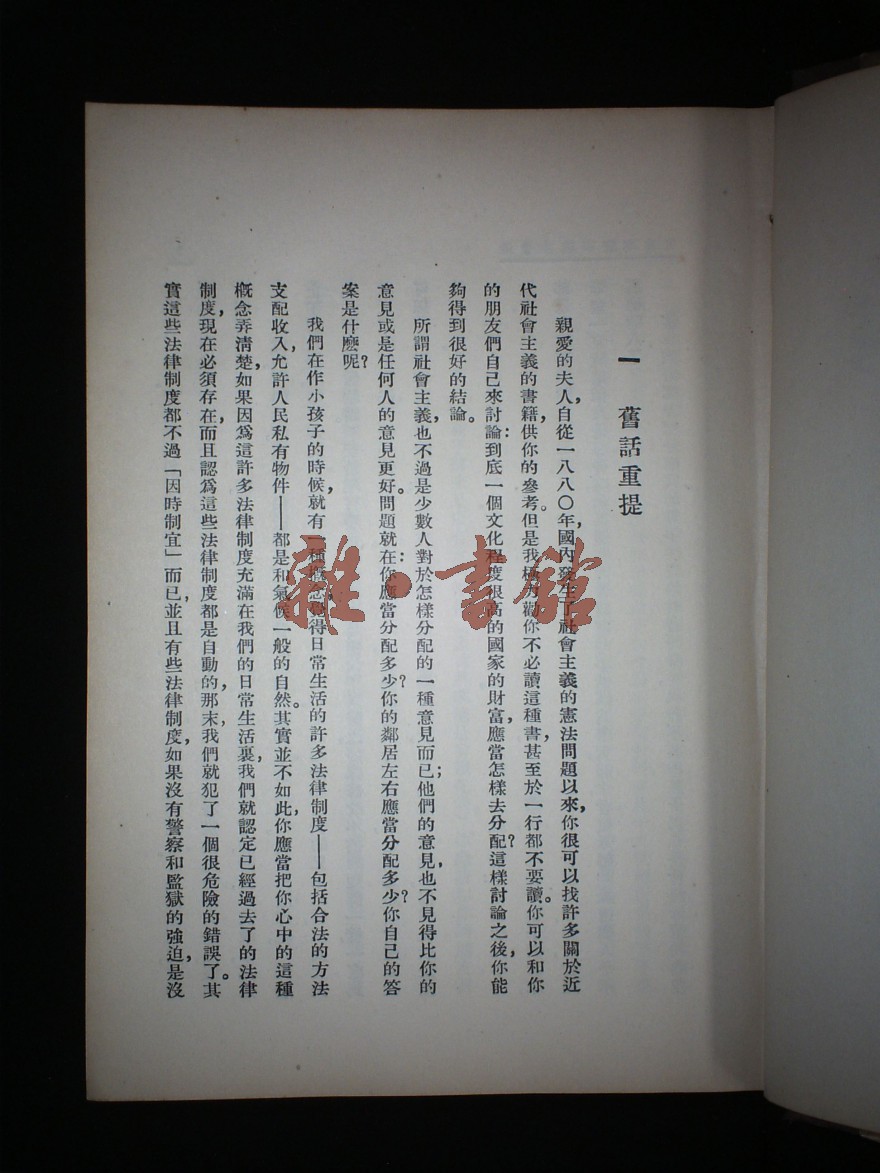 一　舊話重提
親愛的夫人，自從一八八〇年，國內發生了社會主義的憲法問題以來，你很可以找許多關於近
代社會主義的書籍，供你的參考。但是我極力勸你不必讀這種書，甚至於一行都不要讀。你可以和你
的朋友們自己來討論：到底一個文化程度很高的國家的財富，應當怎樣去分配？這樣討論之後，你能
夠得到很好的結論。
所謂社會主義，也不過是少數人對於怎樣分配的一種意見而已；他們的意見，也不見得比你的
意見或是任何人的意見更好。問題就在：你應當分配多少？你的鄰居左右應當分配多少？你自己的答
案是什麼呢？
我們在作小孩子的時候，就有一種概念，覺得日常生活的許多法律制度——包括合法的方法
支配收入，允許人民私有物件——都是和氣候一般的自然。其實並不如此，你應當把你心中的這種
概念弄清楚，如果因爲這許多法律制度充滿在我們的日常生活裏，我們就認定已經過去了的法律
制度，現在必須存在，而且認爲這些法律制度都是自動的，那末，我們就犯了一個很危險的錯誤了。其
實這些法律制度都不過「因時制宜」而已，並且有些法律制度，如果沒有警察和監獄的強迫，是沒
雜·書館